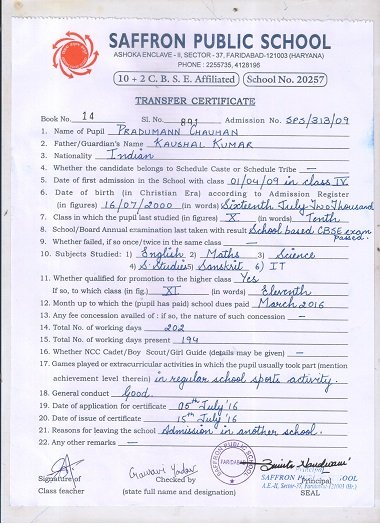 SAFFRON PUBLIC SCHOOL
ASHOKA ENCLAVE - II, SECTOR - 37, FARIDABAD-121003 (HARYANA)
PHONE : 2255735, 4128196
10 + 2 C. B. S. E. Affiliated School No. 20257
TRANSFER CERTIFICATE
Book No. 14 Sl. No. 891 Admission No. SPS/313/09
1. Name of Pupil PRADUMANN CHAUHAN
2. Father/Guardian's Name KAUSHAL KUMAR
3. Nationality Indian
4. Whether the candidate belongs to Schedule Caste or Schedule Tribe —
5. Date of first admission in the School with class 01/04/09 in class IV
6. Date of birth (in Christian Era) according to Admission Register
(in figures) 16/07/2000 (in words) Sixteenth July Two Thousand
7. Class in which the pupil last studied (in figures) X (in words) Tenth
8. School/Board Annual examination last taken with result School based CBSE exam passed.
9. Whether failed, if so once/twice in the same class —
10. Subjects Studied : 1) English 2) Maths 3) Science
4) S.studies 5) Sanskrit 6) IT
11. Whether qualified for promotion to the higher class Yes
If so, to which class (in fig.) XI (in words) Eleventh
12. Month up to which the (pupil has paid) school dues paid March 2016
13. Any fee concession availed of : if so, the nature of such concession —
14. Total No. of working days 202
15. Total No. of working days present 194
16. Whether NCC Cadet/Boy Scout/Girl Guide (details may be given) —
17. Games played or extracurricular activities in which the pupil usually took part (mention
achievement level therein) in regular school sports activity.
18. General conduct Good.
19. Date of application for certificate 05th July'16
20. Date of issue of certificate 15th July'16
21. Reasons for leaving the school Admission in another school.
22. Any other remarks —
Signature of
Class teacher
Gaurav Yadav
Checked by
(state full name and designation)
SAFFRON PUBLIC SCHOOL
FARIDABAD
Principal
SAFFRON PUBLIC SCHOOL
A.E.-II, Sector-37, Faridabad-121003 (Hr.)
SEAL